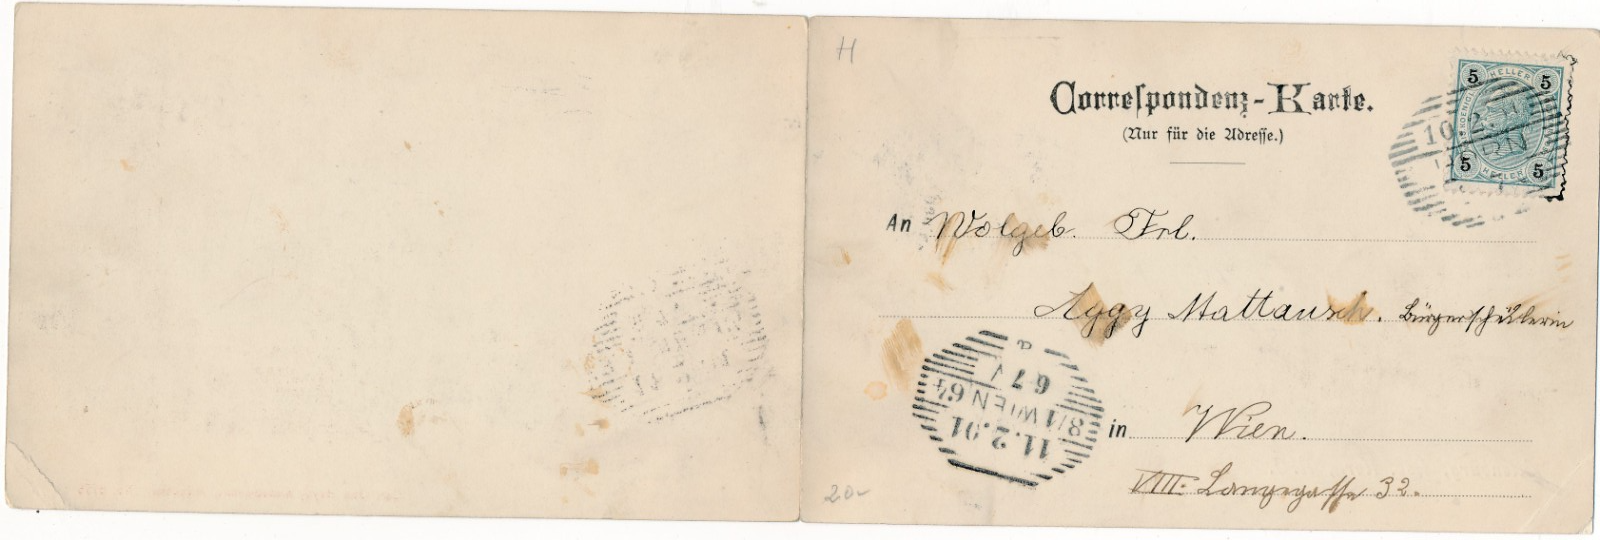 H
Correspondenz-Karte.
(Nur für die Adresse.)
5 HELLER 5
5 HELLER 5
10 2
An Wolgeb. Frl.
Aggy Mattausch. Bürgerschülerin
in Wien.
VIII. Langegasse 32.
11.2.01
8/1 WIEN 64
6-7 V
a
20-